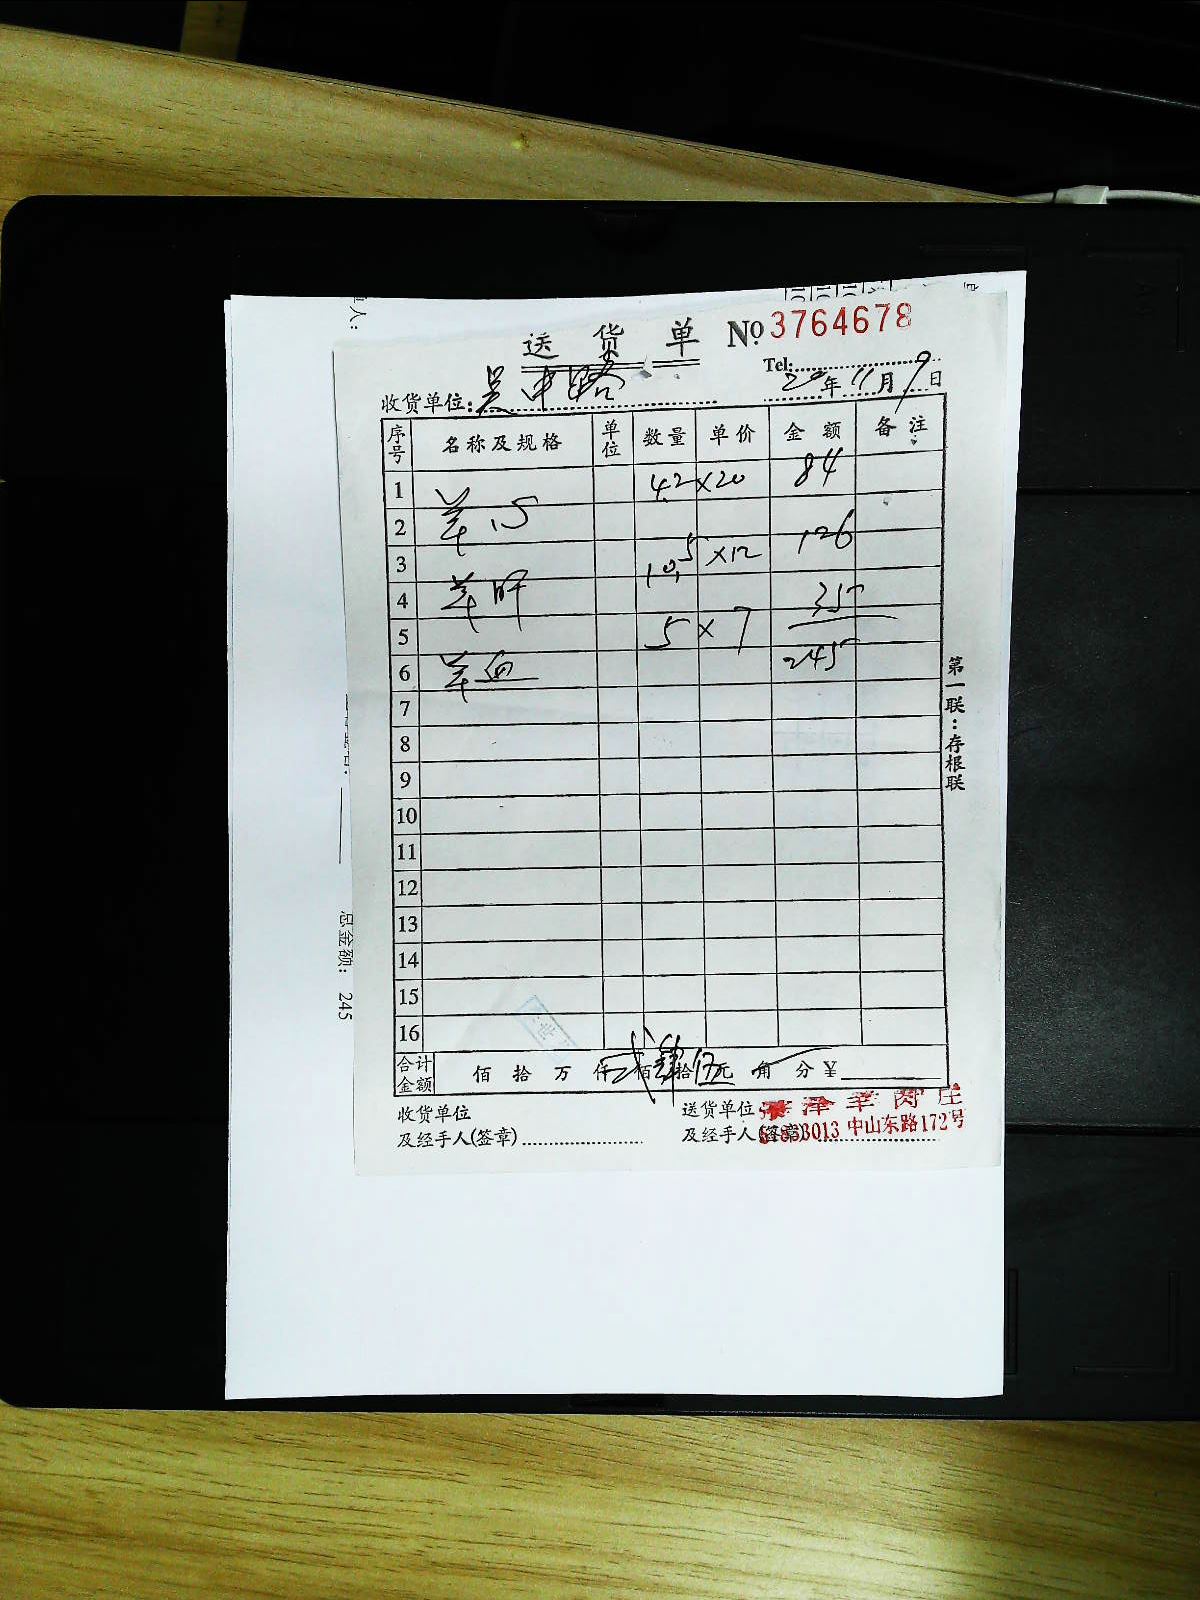 送 货 单 No. 3764678
Tel:
收货单位: 吴中路 20年11月9日
序号 名称及规格 单位 数量 单价 金额 备注
1 4.2 ×20 84
2 羊心
3 10.5 ×12 126
4 羊肝 35
5 5 × 7
6 羊血 245
7
8
9
10
11
12
13
14
15
16
合计金额 佰 拾 万 仟 贰佰 肆拾 伍元 角 分 ¥
收货单位 送货单位
及经手人(签章) 及经手人(签章) 3013 中山东路172号
第一联:存根联
总金额: 245